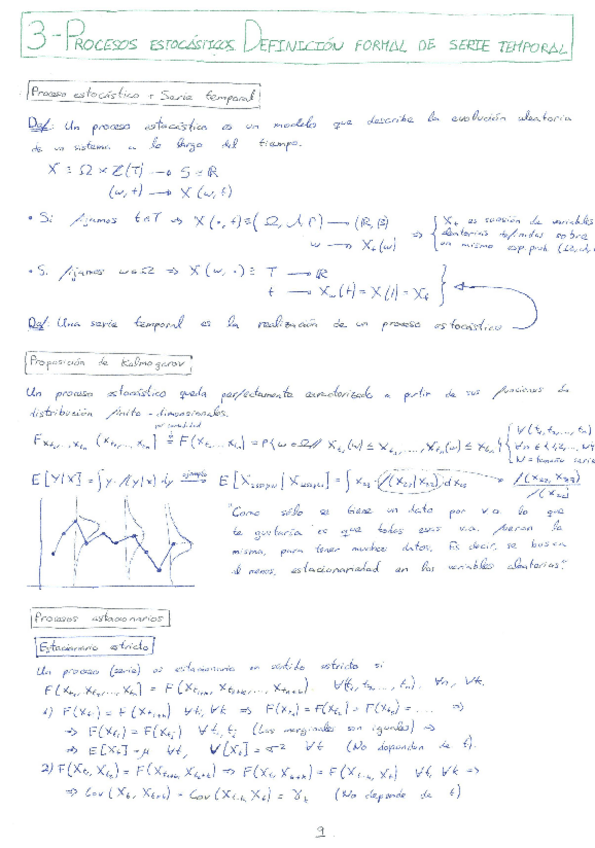 3-PROCESOS ESTOCÁSTICOS. DEFINICIÓN FORMAL DE SERIE TEMPORAL
Proceso estocástico + Serie temporal
Def: Un proceso estocástico es un modelo que describe la evolución aleatoria
de un sistema a lo largo del tiempo.
X ≡ Ω × Z(T) → S ≡ ℝ
(w, t) → X(w, t)
• Si fijamos t∈T ⇒ X(·, t) ≡ (Ω, A, P) → (ℝ, B)
w → X_t(w)
⇒ { X_t es sucesión de variables
aleatorias definidas sobre
un mismo esp. prob.
• Si fijamos w∈Ω ⇒ X(w, ·) ≡ T → ℝ
t → X_w(t) = X(t) = X_t
Def: Una serie temporal es la realización de un proceso estocástico
Proposición de Kolmogorov
Un proceso estocástico queda perfectamente caracterizado a partir de sus funciones de
distribución finito-dimensionales.
F_{X_{t_1},...,X_{t_n}} (x_{t_1},...,x_{t_n}) = F(x_{t_1},...,x_{t_n}) = P{w∈Ω // X_{t_1}(w) ≤ x_{t_1},...,X_{t_n}(w) ≤ x_{t_n}}
E[Y|X] = ∫y·f(y|x)dy ejemplo
"Como sólo se tiene un dato por v.a. lo que
te gustaría es que todas esas v.a. fueran la
misma, para tener muchos datos. Es decir, se busca
al menos, estacionariedad en las variables aleatorias."
Procesos estacionarios
Estacionario estricto
Un proceso (serie) es estacionario en sentido estricto si
F(x_{t_1}, x_{t_2},..., x_{t_n}) = F(x_{t_1+k}, x_{t_2+k},..., x_{t_n+k}) ∀(t_1, t_2,..., t_n), ∀n, ∀k.
1) F(x_{t_i}) = F(x_{t_i+k}) ∀t_i ∀k ⇒
⇒ F(x_{t_i}) = F(x_{t_j}) ∀t_i, t_j (Las marginales son iguales) ⇒
⇒ E[X_t] = μ ∀t, V[X_t] = σ² ∀t (No dependen de t).
⇒ Cov(X_t, X_{t+k}) = Cov(X_{t-k}, X_t) = γ_k (No depende de t)
9